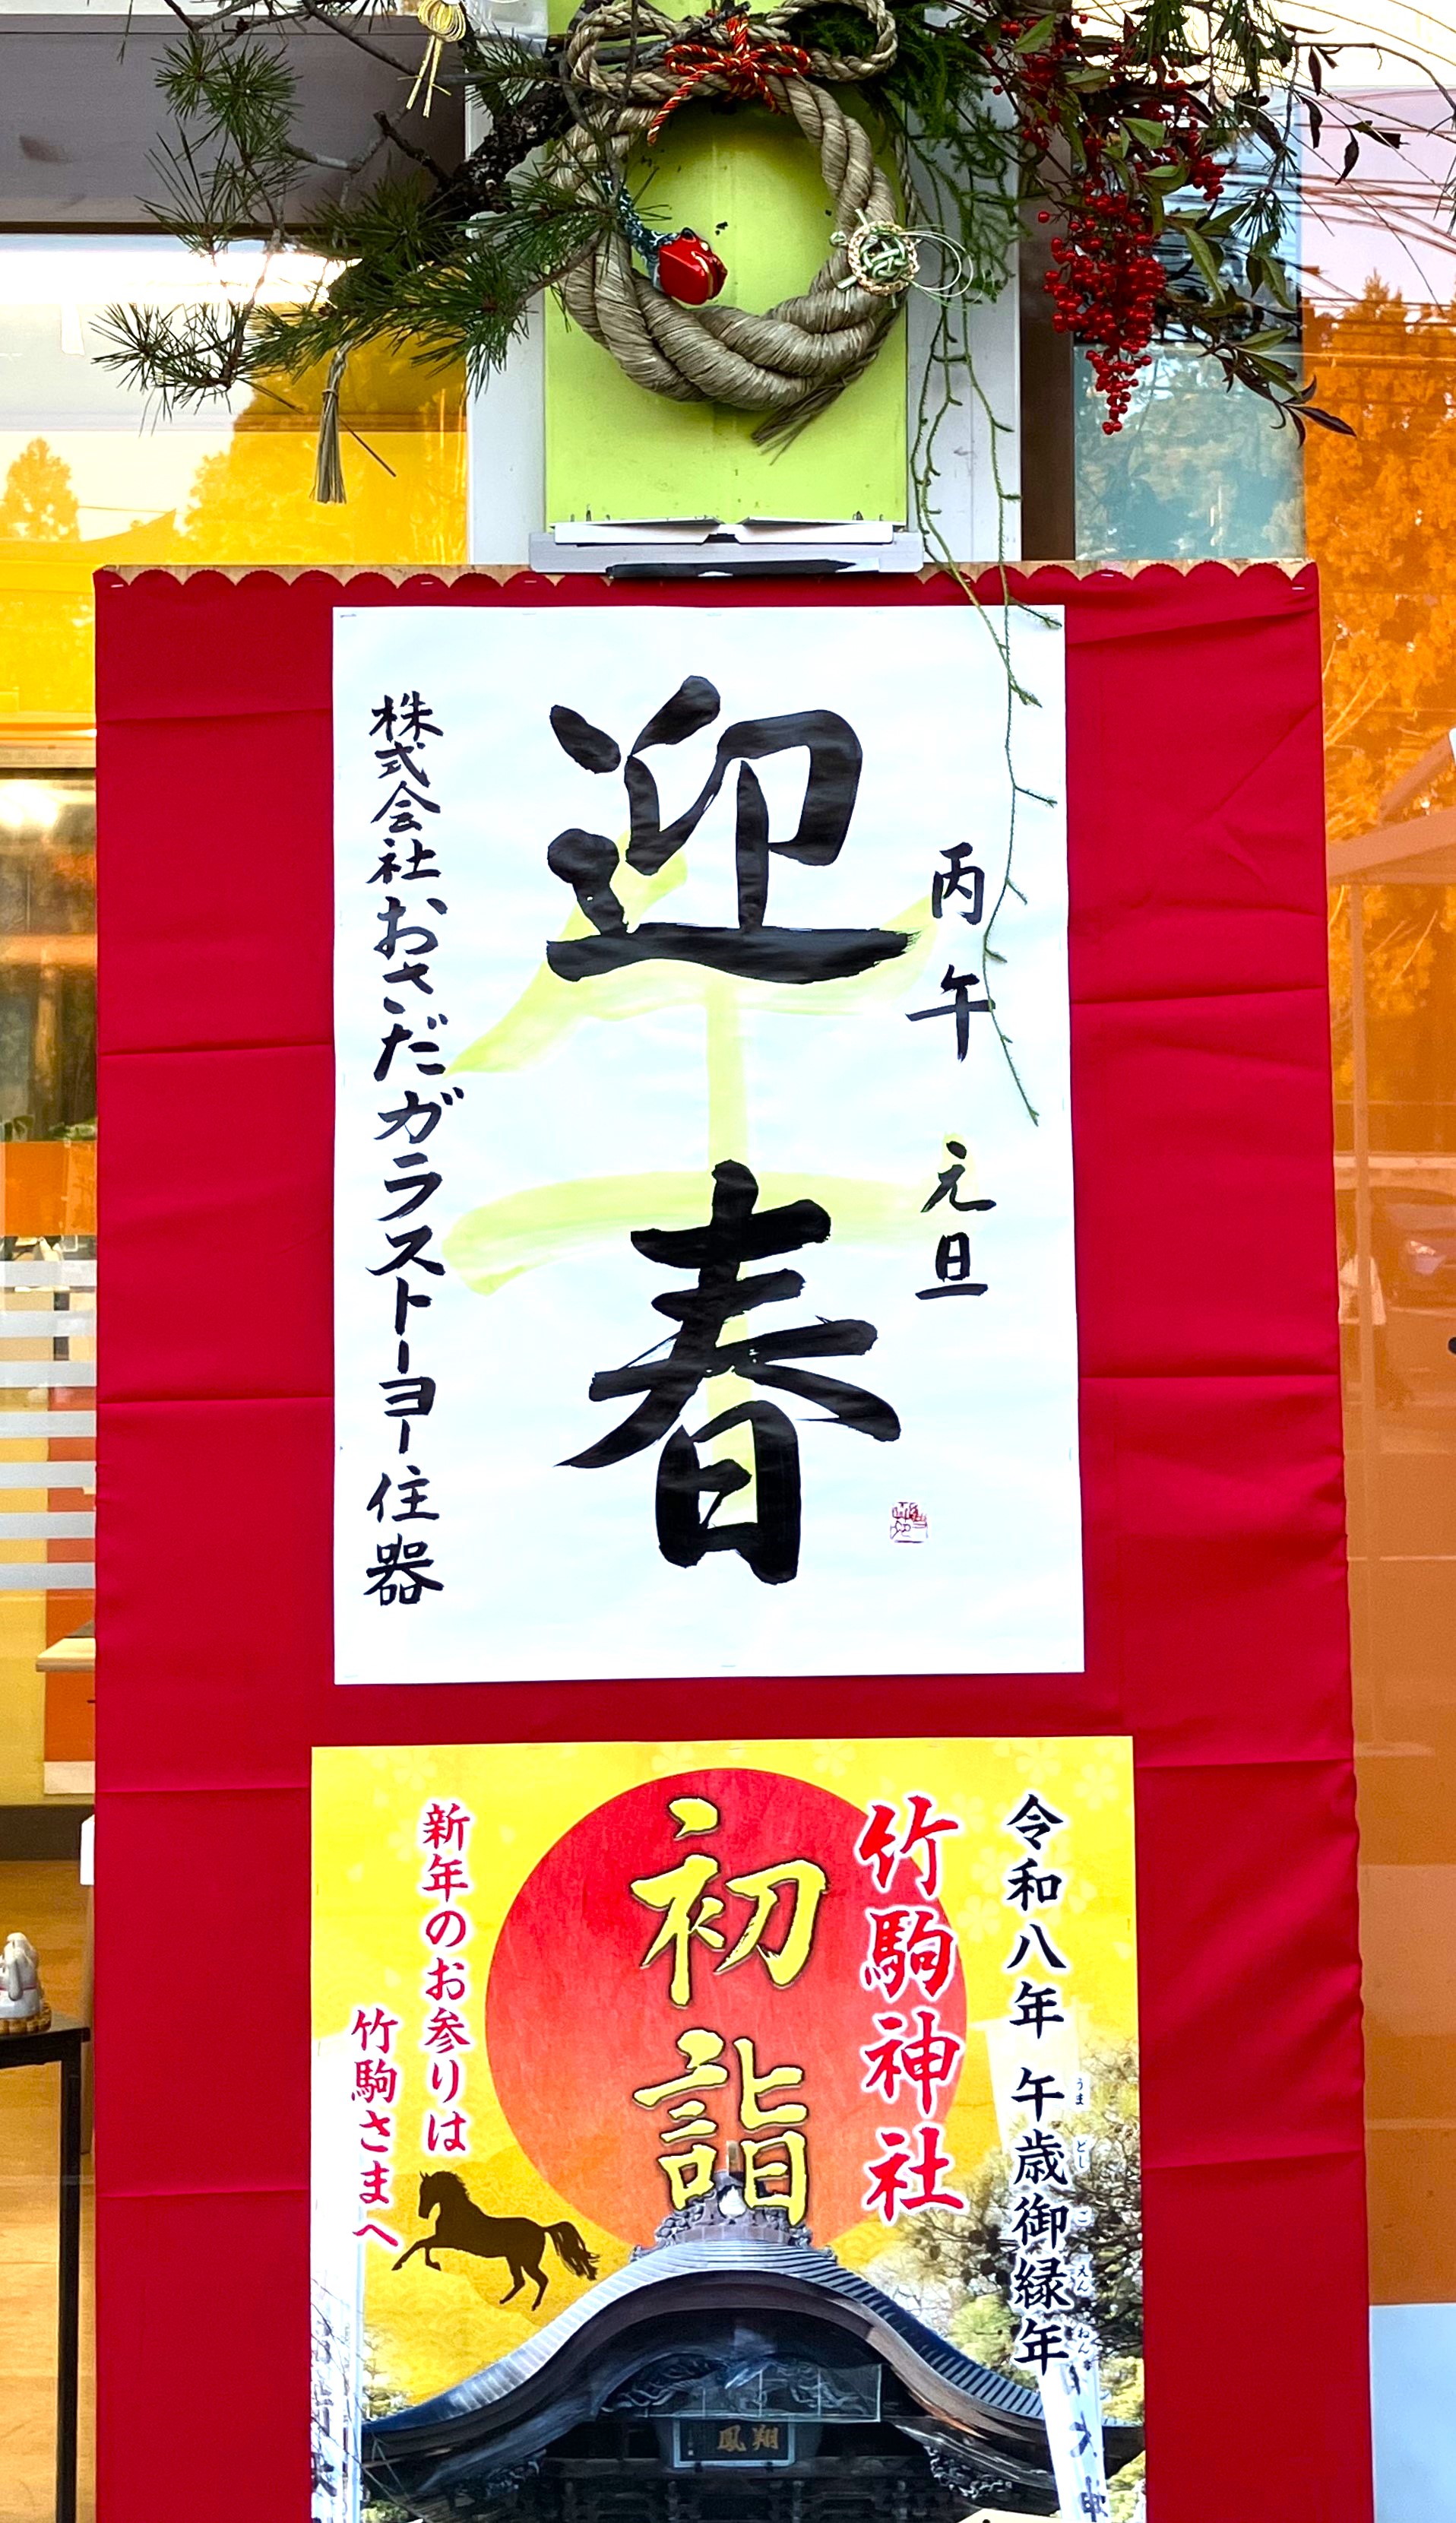 丙午 元旦
迎春
午
株式会社おさだガラストーヨー住器
令和八年 午歳御縁年
うまどしごえんねん
竹駒神社
初詣
新年のお参りは
竹駒さまへ
鳳翔